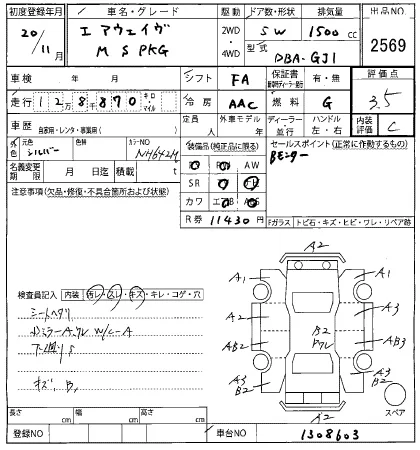 初度登録年月 車名・グレード 駆動 ドア数・形状 排気量 出品NO
20/11月 エアウェイヴ 2WD SW 1500cc 2569
M S PKG 4WD 型式 DBA-GJ1
車検 年 月 シフト FA 保証書 有・無 評価点
走行 12万8千870 キロ・マイル 冷房 AAC 燃料 G 3.5
車歴 自家用・レンタ・事業用( ) 定員 人 外車モデル 年 ディーラー 並行 ハンドル 左・右 内装評価 C
外色 元色 シルバー 色替 カラーNO NH642M 装備品(純正品に限る) セールスポイント(正常に作動するもの)
名義変更期限 月 日迄 積載 t AW Bモニター
注意事項(欠品・修復・不具合箇所および状態) SR
カワ エアB
R券 11430円 Fガラス トビ石・キズ・ヒビ・ワレ・リペア跡
A2
A1 A1
検査員記入 内装 汚レ・スレ・キズ・キレ・コゲ・穴
シートヘタリ A2 A3
ミラーA W/C-A B2
下廻りS AB2 AB3
A3 B2 A3 B2
キズ B
A2 スペア
長さ cm 幅 cm 高さ cm
登録NO 車台NO 1308603